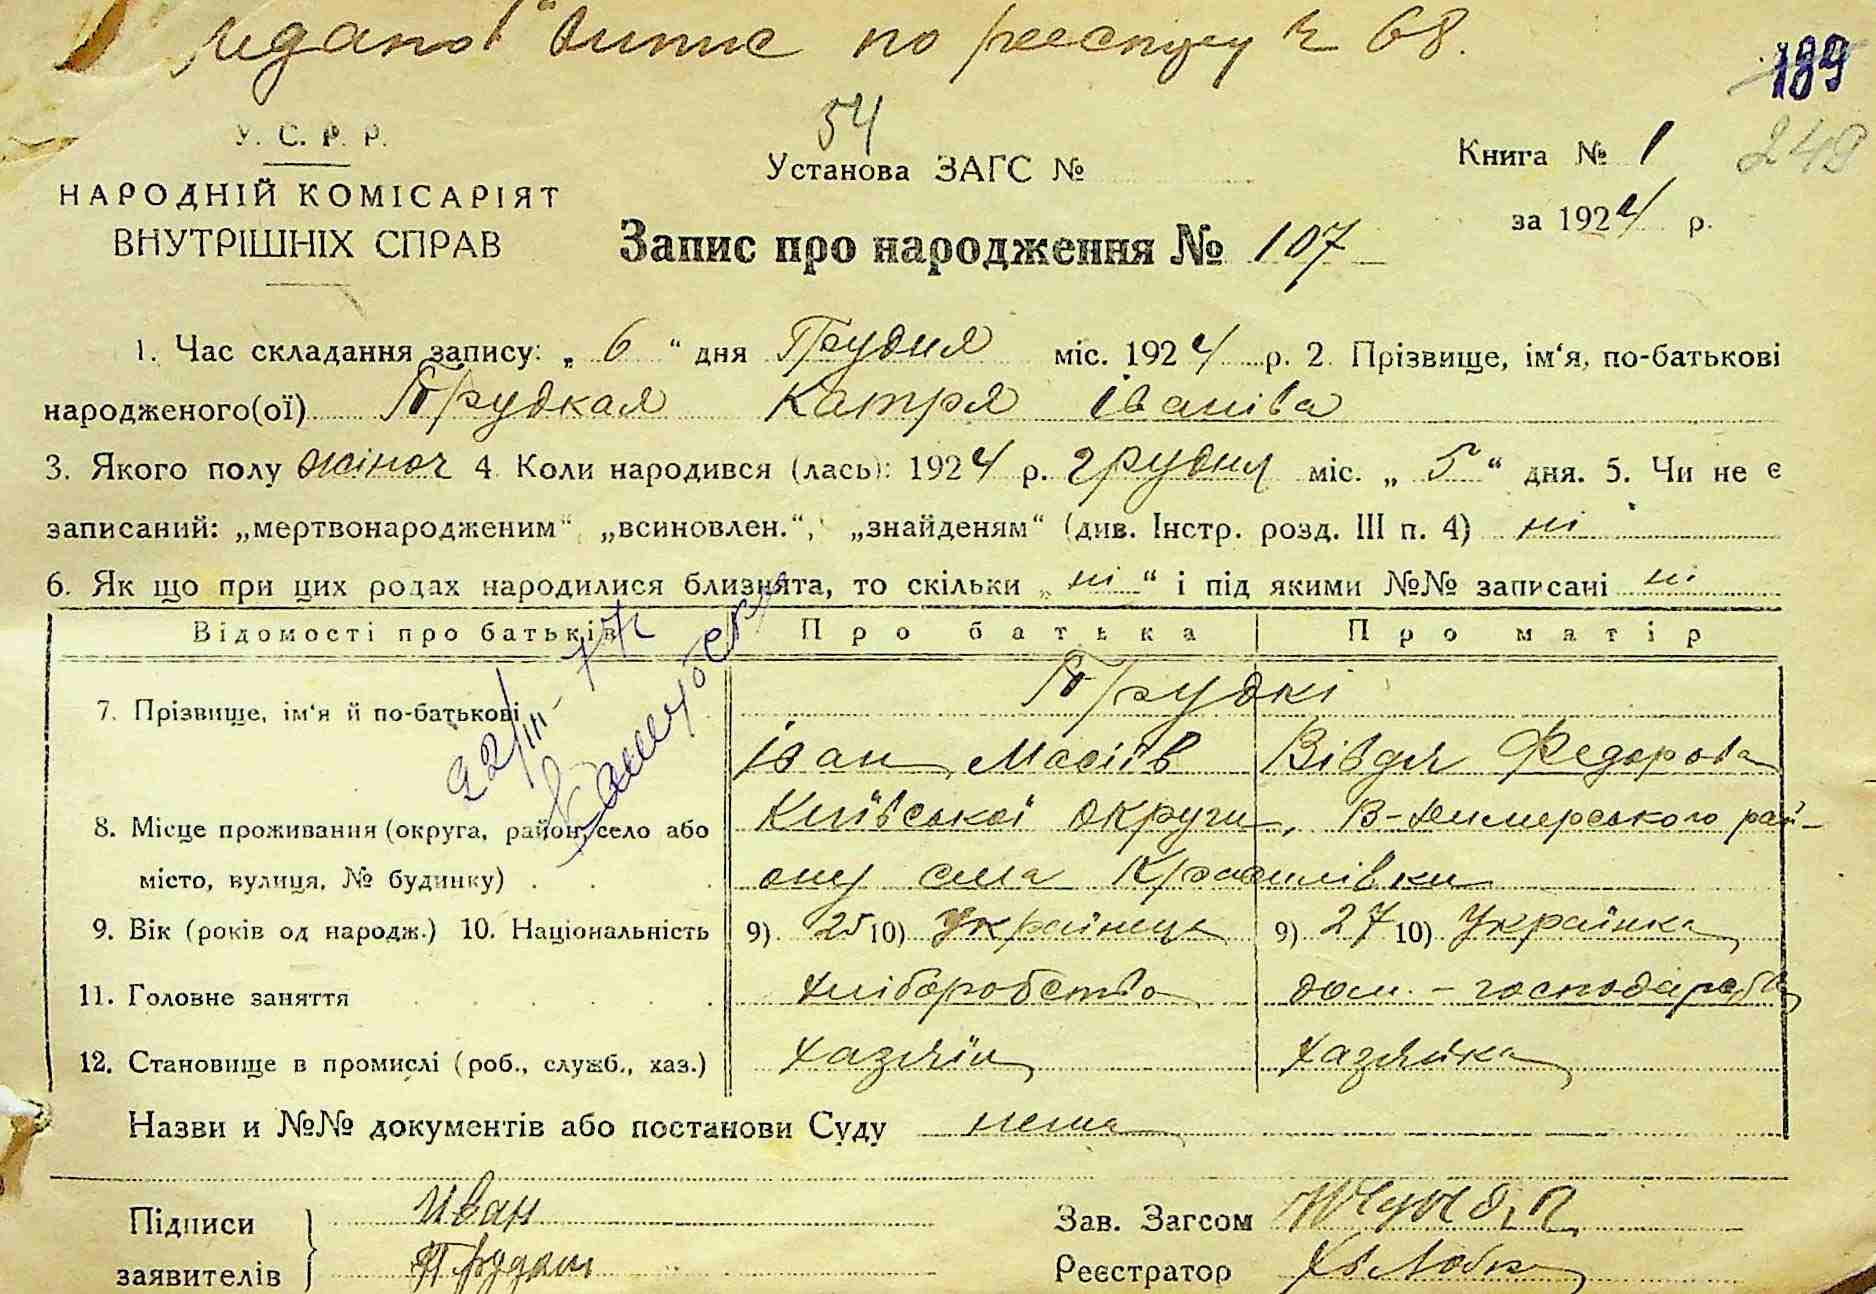 Видано Витяс по реєстру № 68.
189
249
У. С. Р. Р.
НАРОДНІЙ КОМІСАРІЯТ
ВНУТРІШНІХ СПРАВ
54
Установа ЗАГС №
Книга № 1
за 1924 р.
Запис про народження № 107
1. Час складання запису: „ 6 “ дня Грудня міс. 1924 р. 2. Прізвище, ім‘я, по-батькові
народженого(ої) Прудкая Катря Іванівa
3. Якого полу жіноч 4. Коли народився (лась): 1924 р. грудня міс. „ 5 “ дня. 5. Чи не є
записаний: „мертвонародженим“ „всиновлен.“, „знайденям“ (див. Інстр. розд. III п. 4) ні
6. Як що при цих родах народилися близнята, то скільки „ ні “ і під якими №№ записані ні
Відомості про батьків Про батька Про матір
7. Прізвище, ім‘я й по-батькові Прудкі
Іван Мосіїв Вівдя Федорова
22/III-77г
8. Місце проживання (округа, район, село або Київської округи, В-Димерського рай-
місто, вулиця, № будинку) ону села Красилівки
9. Вік (років од народж.) 10. Національність 9) 25 10) Українець 9) 27 10) Українка
11. Головне заняття хліборобство дом.-господарств
12. Становище в промислі (роб., служб., хаз.) хазяїн хазяйка
Назви и №№ документів або постанови Суду нема
Підписи Иван Зав. Загсом
заявителів Прудки Реєстратор